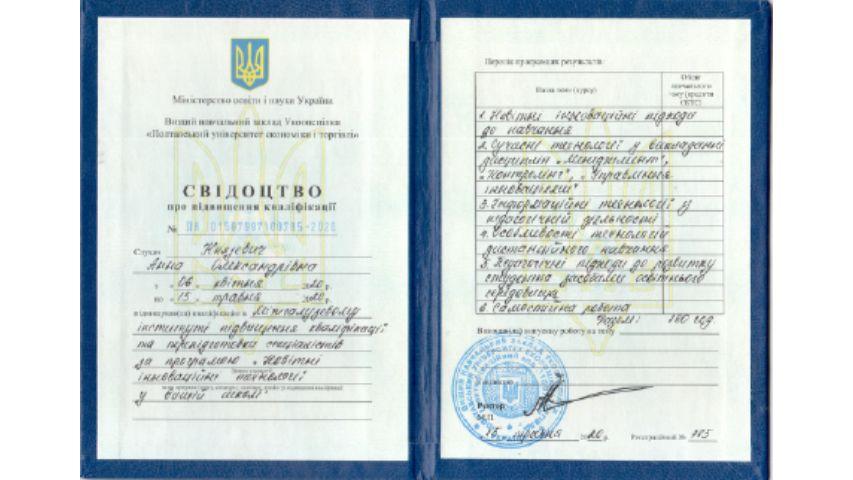 Міністерство освіти і науки України
Вищий навчальний заклад Укоопспілки
«Полтавський університет економіки і торгівлі»
СВІДОЦТВО
про підвищення кваліфікації
№ ПК 01597997100785-2020
Слухач Князевич
Анна Олександрівна
з „06 „ квітня 2020 р.
по „15 „ травня 2020 р.
підвищував(ла) кваліфікацію в Міжгалузевому
інституті підвищення кваліфікації
та перепідготовки спеціалістів
за програмою „Новітні
інноваційні технології
у вищій школі"
Перелік програмних результатів:
Назва теми (курсу)
Обсяг
навчального
часу (кредити
ЄКТС)
1. Новітні інноваційні підходи
до навчання
2. Сучасні технології у викладанні
дисциплін „Менеджмент",
„Контролінг", „Управління
інноваціями"
3. Інформаційні технології у
педагогічній діяльності
4. Особливості технологій
дистанційного навчання
5. Педагогічні підходи до розвитку
студента засобами освітнього
середовища
6. Самостійна робота
Разом: 180 год
випускну роботу на тему
Ректор
М.П.
15 травня 2020 р. Реєстраційний № 785